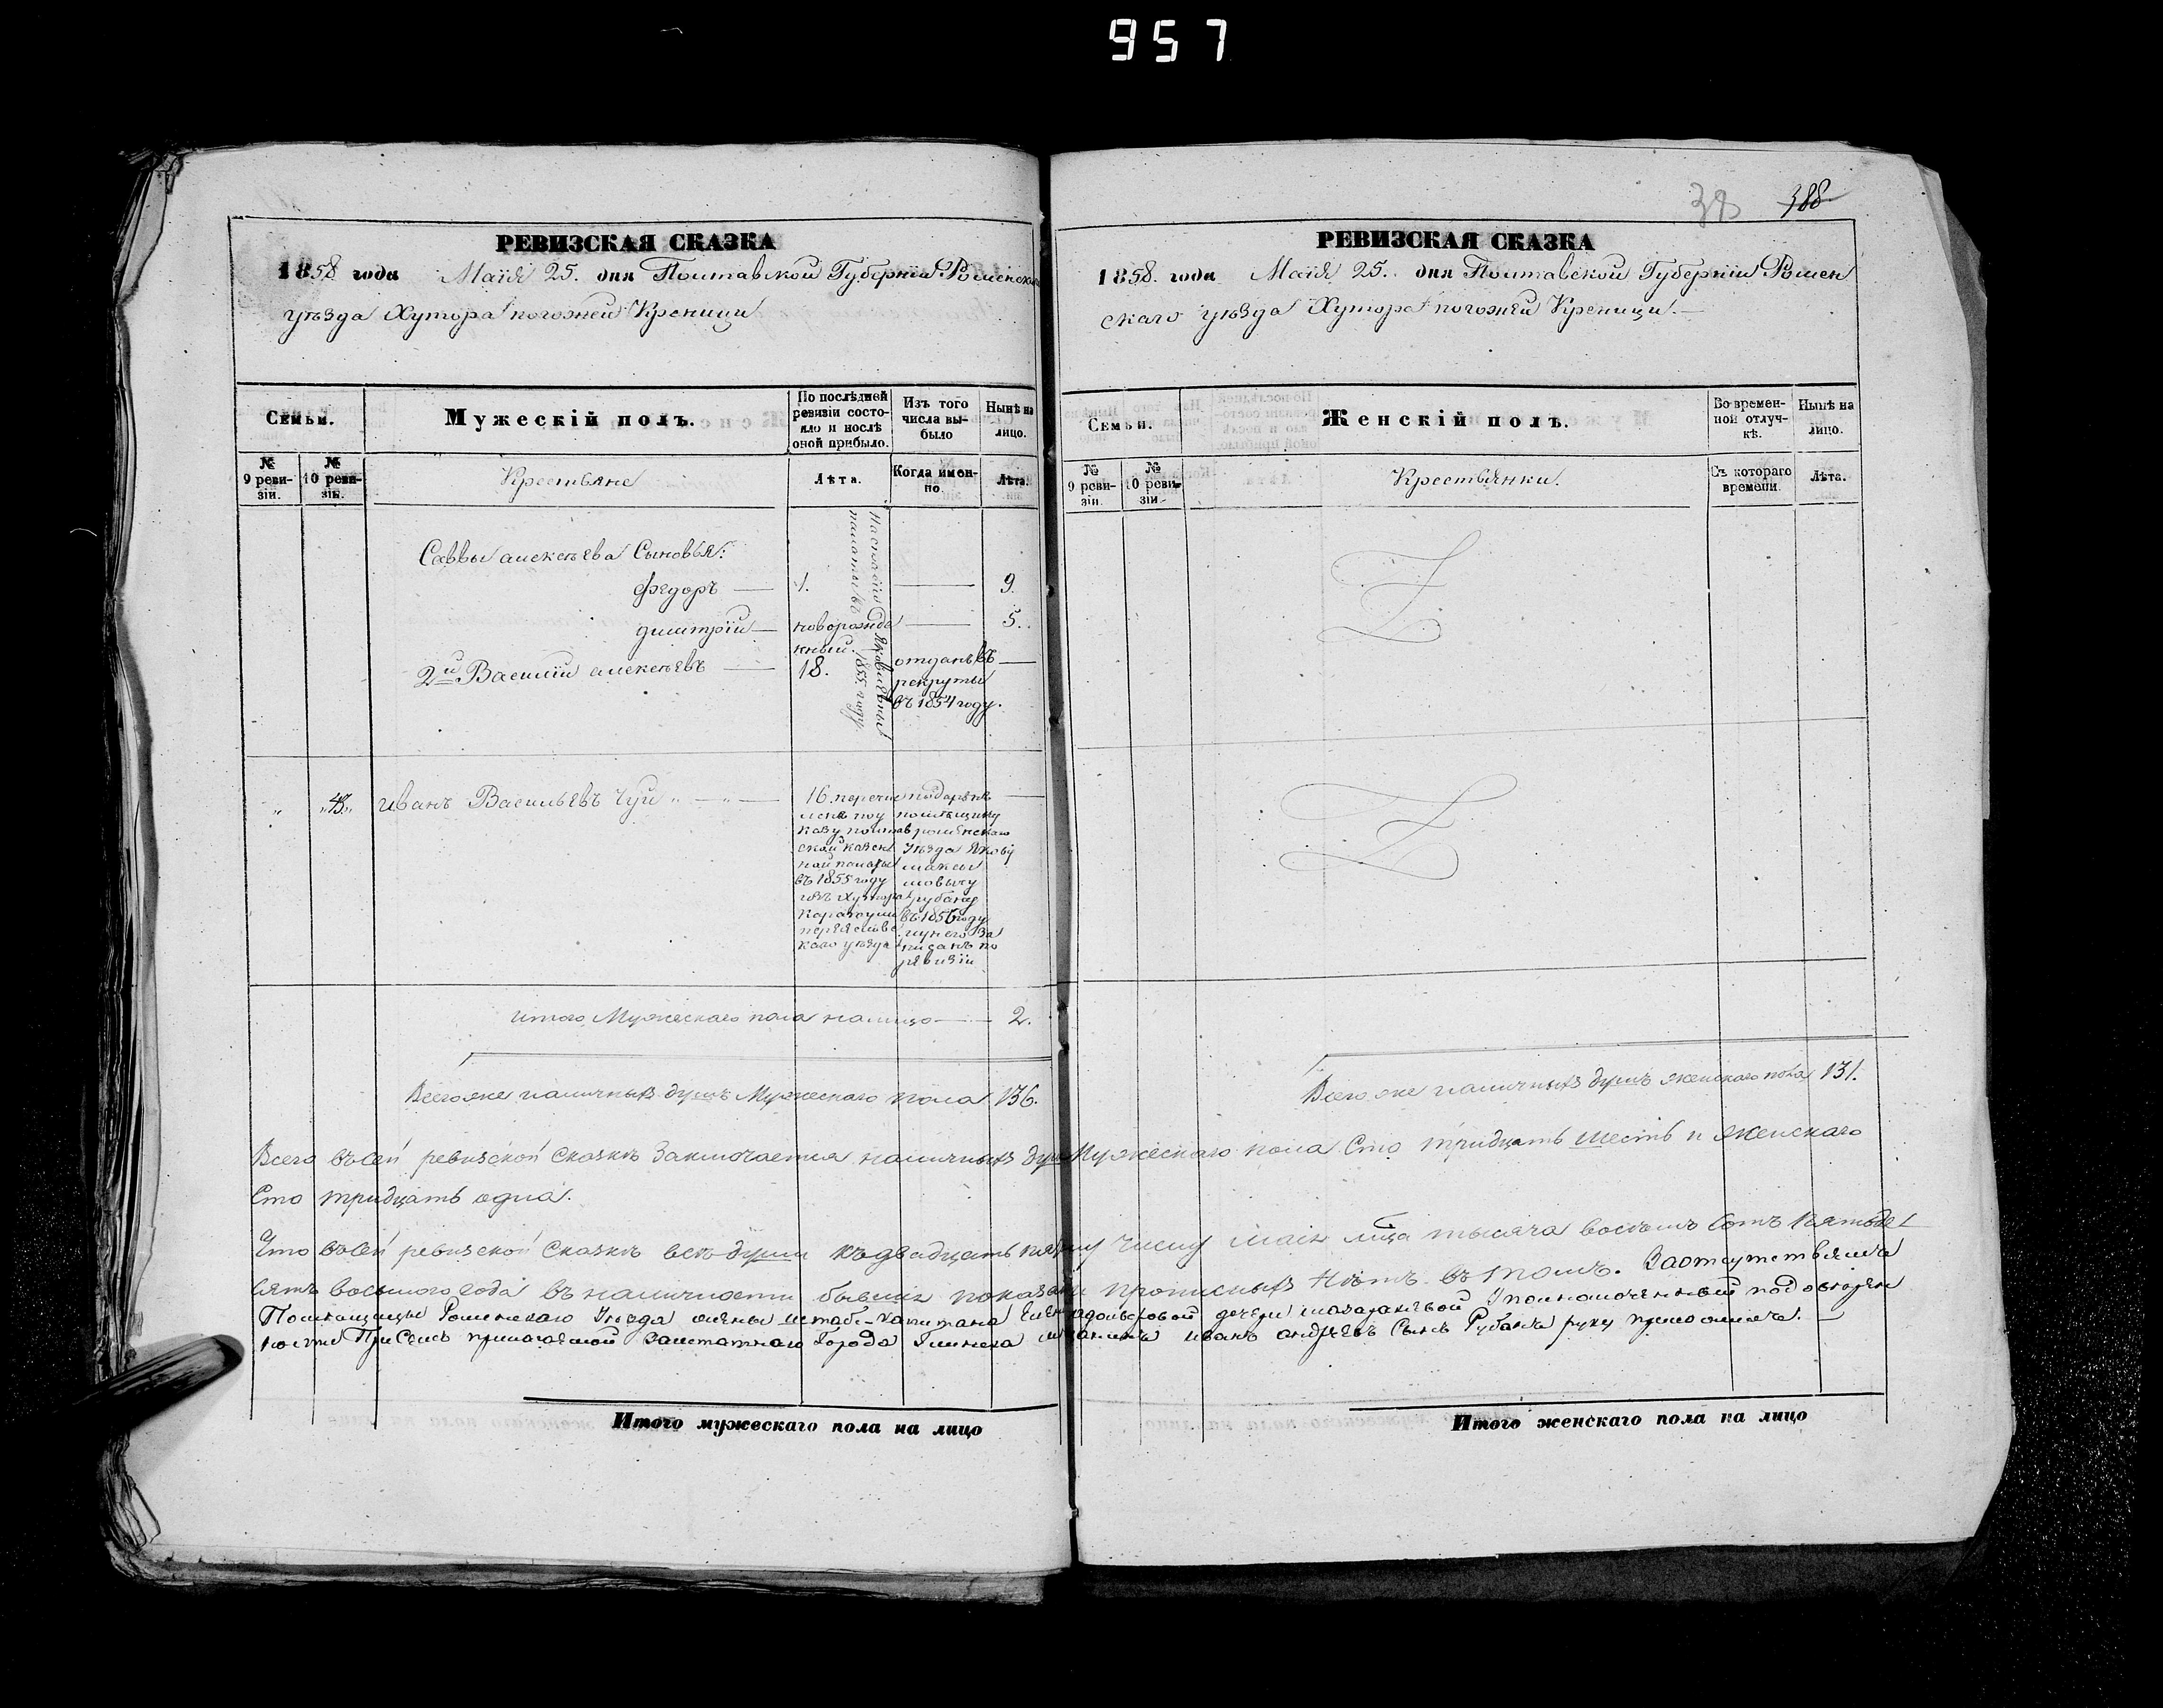 957
РЕВИЗСКАЯ СКАЗКА
1858 года Маія 25. дня Полтавской Губерніи Роменскаго
уѣзда Хутора погожей Креници
Семьи.
Мужескій полъ.
По послѣдней ревизіи состояло и послѣ оной прибыло.
Изъ того числа выбыло
Нынѣ на лицо.
№ 9 ревизіи.
№ 10 ревизіи.
Крестьяне
Лѣта.
Когда именно.
Лѣта.
Саввы алексѣева Сыновья:
федоръ 1. 9.
димитрій новорожденный. 5.
2й Василій алексѣевъ 18. отданъ въ
рекруты
въ 1854 году.
палаты въ 1855 году
„ „48„ иванъ Васильевъ Чуй „ — „ — 16. перечис
ленъ по у
казу полтав
ской казен
ной палаты
въ 1855 году
изъ Хутора
переяслвс
каго уѣзда
подаренъ
помѣщику
роменскаго
Уѣзда Якову
максы
мовычу
рубану
въ 1856 году
и у него за
писанъ по
ревизіи
итого Мужескаго пола налицо — 2.
Всего же наличныхъ душъ Мужескаго пола 136.
Итого мужескаго пола на лицо
38 388
РЕВИЗСКАЯ СКАЗКА
1858. года Маія 25. дня Полтавской Губерніи Ромен
скаго уѣзда Хутора погожей Креници. —
Семьи.
Женскій полъ.
Во временной отлучкѣ.
Нынѣ на лицо.
№ 9 ревизіи.
№ 10 ревизіи.
Крестьянки.
Съ котораго времени.
Лѣта.
Всего же наличныхъ душъ женскаго пола 131.
Всего въ сей ревизской сказкѣ Заключается наличныхъ душъ Мужескаго пола Сто тридцать шесть и женскаго
Сто тридцать одна.
Что въ сей ревизской Сказкѣ всѣ души къ двадцать пятому числу маія мца тысяча восемь сотъ пятьде
сятъ восьмого года въ наличности бывшія показаны прописныхъ Нѣтъ въ томъ. За отсутствіемъ
Помѣщицы Роменскаго Уѣзда жены штабс-капитана дочери Уполномоченный по довѣрен
ности При семъ прилагаемой Заштатнаго Города Глинска мѣщанинъ иванъ андреевъ Сынъ Рубанъ руку приложилъ. —
Итого женскаго пола на лицо